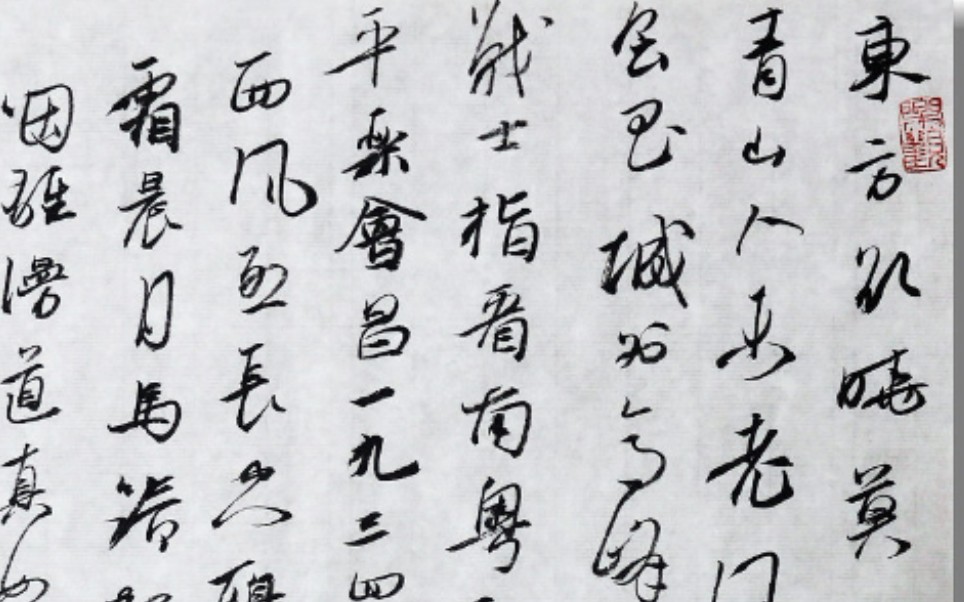 東方欲曉莫
青山人未老
會昌城外高峰
戰士指看南粤
平樂會昌一九三四
西风烈長空
霜晨月馬蹄
咽雄漫道真如